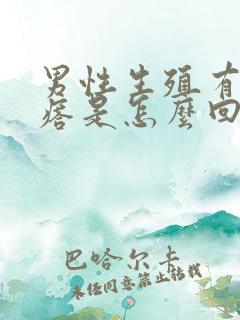 男性生殖有
痞是怎麼回
巴哈尔卡
未经同意禁止转载